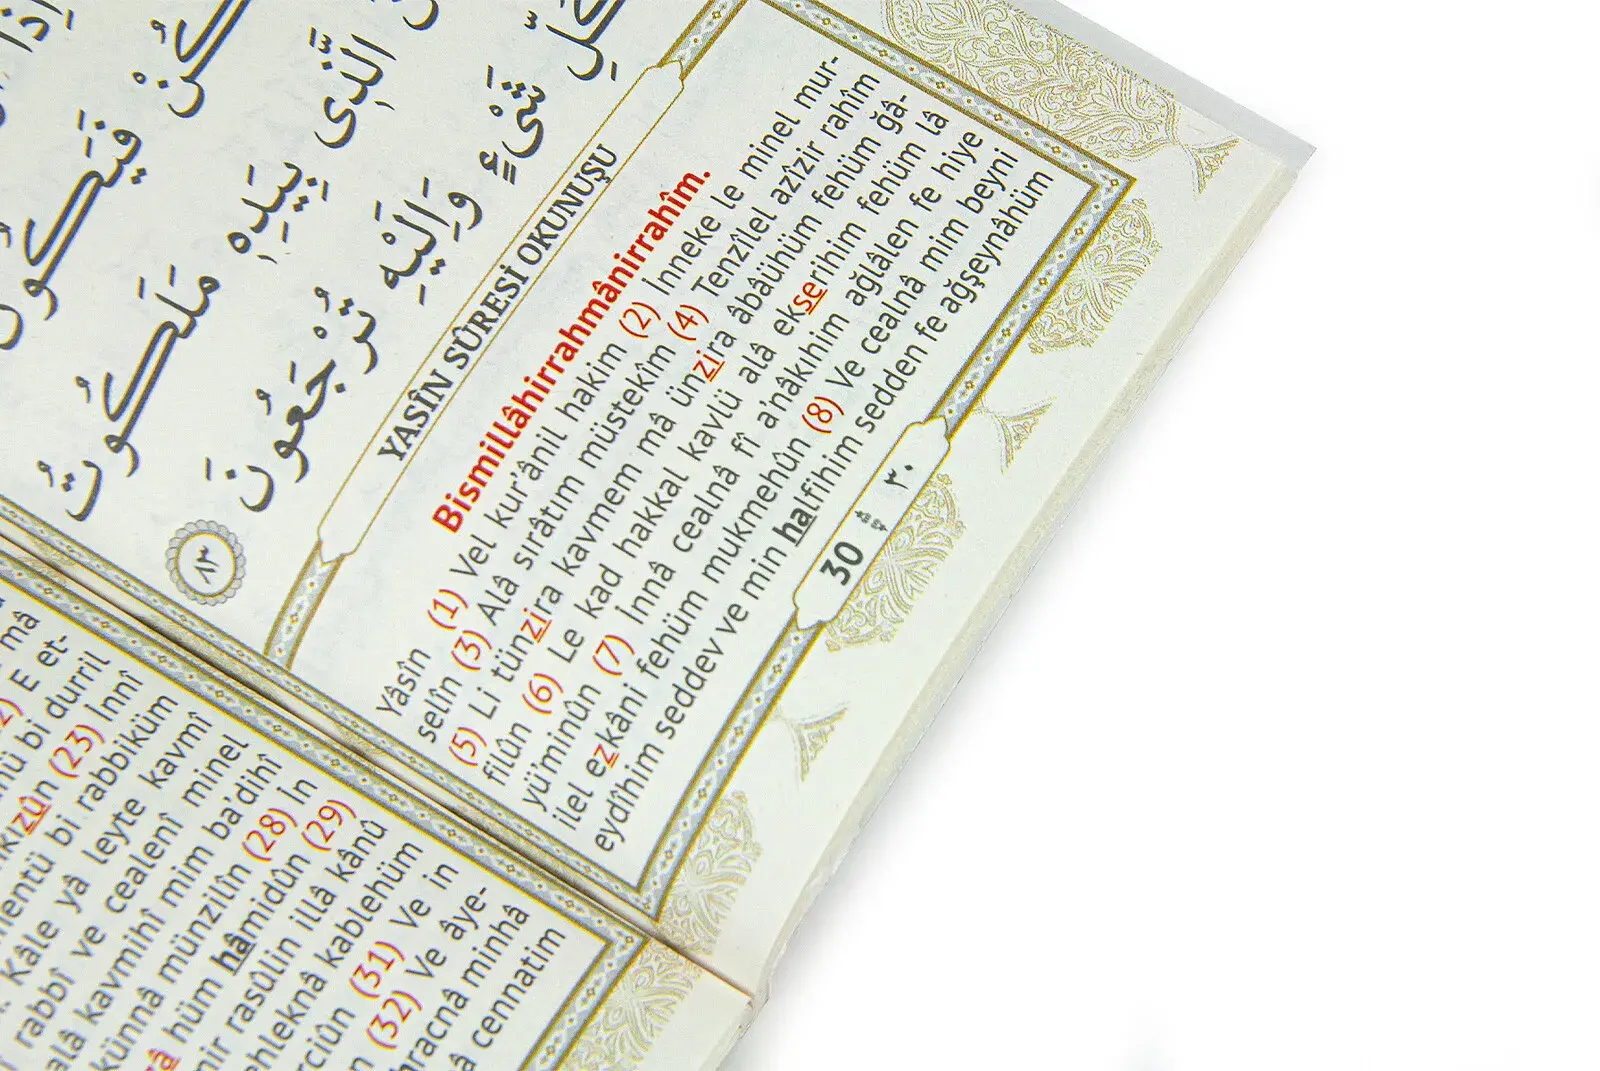 إِذَا
كُنْ فَيَكُونُ
الَّذِى بِيَدِهِ مَلَكُوتُ
كُلِّ شَىْءٍ وَاِلَيْهِ تُرْجَعُونَ ٨٣
YASÎN SÛRESİ OKUNUŞU
Bismillâhirrahmânirrahîm.
Yâsîn (1) Vel kur'ânil hakim (2) İnneke le minel mur-
selîn (3) Alâ sırâtım müstekîm (4) Tenzîlel azîzir rahîm
(5) Li tünzira kavmem mâ ünzira âbâühüm fehüm ğâ-
filûn (6) Le kad hakkal kavlü alâ ekserihim fehüm lâ
yü'minûn (7) İnnâ cealnâ fî a'nâkıhim ağlâlen fe hiye
ilel ezkâni fehüm mukmehûn (8) Ve cealnâ mim beyni
eydîhim seddev ve min halfihim sedden fe ağşeynâhüm
30 ٣٠
mâ
E et-
bi durril
(23) İnnî
bi rabbiküm
Kâle yâ leyte kavmî
rabbî ve cealenî minel
alâ kavmihî mim ba'dihî
künnâ münzilîn (28) İn
hüm hâmidûn (29)
rasûlin illâ kânû
ehleknâ kablehüm
(31) Ve in
(32) Ve âye-
minhâ
cennatim